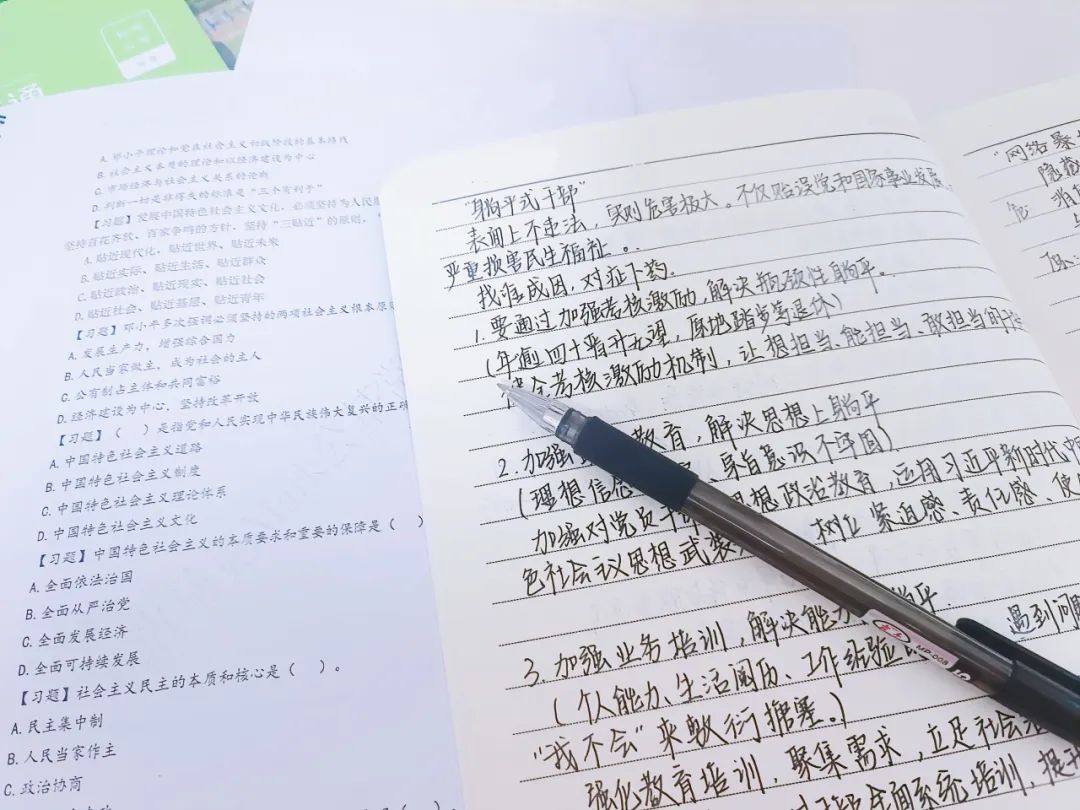 通
A. 邓小平理论和党在社会主义初级阶段的基本路线
B. 社会主义本质的理论和以经济建设为中心
C. 市场经济与社会主义关系的论断
D. 判断一切是非得失的标准是“三个有利于”
【习题】发展中国特色社会主义文化，必须坚持为人民服
坚持百花齐放、百家争鸣的方针，坚持“三贴近”的原则，
A. 贴近现代化、贴近世界、贴近未来
B. 贴近实际、贴近生活、贴近群众
C. 贴近政治、贴近现实、贴近社会
D. 贴近社会、贴近基层、贴近青年
【习题】邓小平多次强调必须坚持的两项社会主义根本原
A. 发展生产力，增强综合国力
B. 人民当家做主，成为社会的主人
C. 公有制占主体和共同富裕
D. 经济建设为中心，坚持改革开放
【习题】（ ）是指党和人民实现中华民族伟大复兴的正确
A. 中国特色社会主义道路
B. 中国特色社会主义制度
C. 中国特色社会主义理论体系
D. 中国特色社会主义文化
【习题】中国特色社会主义的本质要求和重要的保障是（ ）
A. 全面依法治国
B. 全面从严治党
C. 全面发展经济
D. 全面可持续发展
【习题】社会主义民主的本质和核心是（ ）。
A. 民主集中制
B. 人民当家作主
C. 政治协商
“躺平式干部”
表面上不违法，实则危害极大。不仅贻误党和国家事业发展，
严重损害民生福祉。
找准成因，对症下药。
1. 要通过加强考核激励，解决瓶颈性躺平。
（年逾四十晋升无望，原地踏步等退休）
全考核激励机制，让想担当、能担当、敢担当的干
2. 加强 教育，解决思想上躺平
（理想信念 、宗旨意识不牢固）
加强对党员干 思想政治教育，运用习近平新时代中
色社会主义思想武装 树立紧迫感、责任感、使
3. 加强业务培训，解决能力 躺平.
（个人能力、生活阅历、工作经验 遇到问
“我不会”来敷衍搪塞。）
强化教育培训，聚集需求，立足社会
系统培训，提升
“网络暴
隐蔽
危：
MP-008